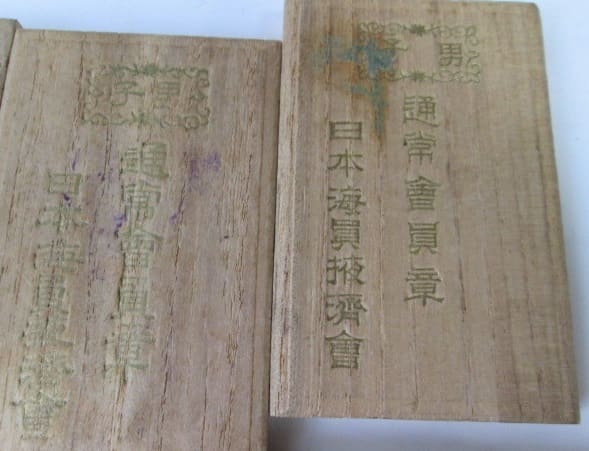 男子
通常會員章
日本海員掖濟會
男子
通常會員章
日本海員掖濟會